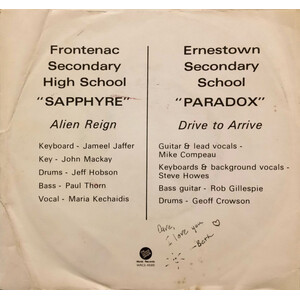 Frontenac
Secondary
High School
"SAPPHYRE"
Alien Reign
Keyboard - Jameel Jaffer
Key - John Mackay
Drums - Jeff Hobson
Bass - Paul Thorn
Vocal - Maria Kechaidis
Ernestown
Secondary
School
"PARADOX"
Drive to Arrive
Guitar & lead vocals -
Mike Compeau
Keyboards & background vocals -
Steve Howes
Bass guitar - Rob Gillespie
Drums - Geoff Crowson
Dave,
I love you
-Beth